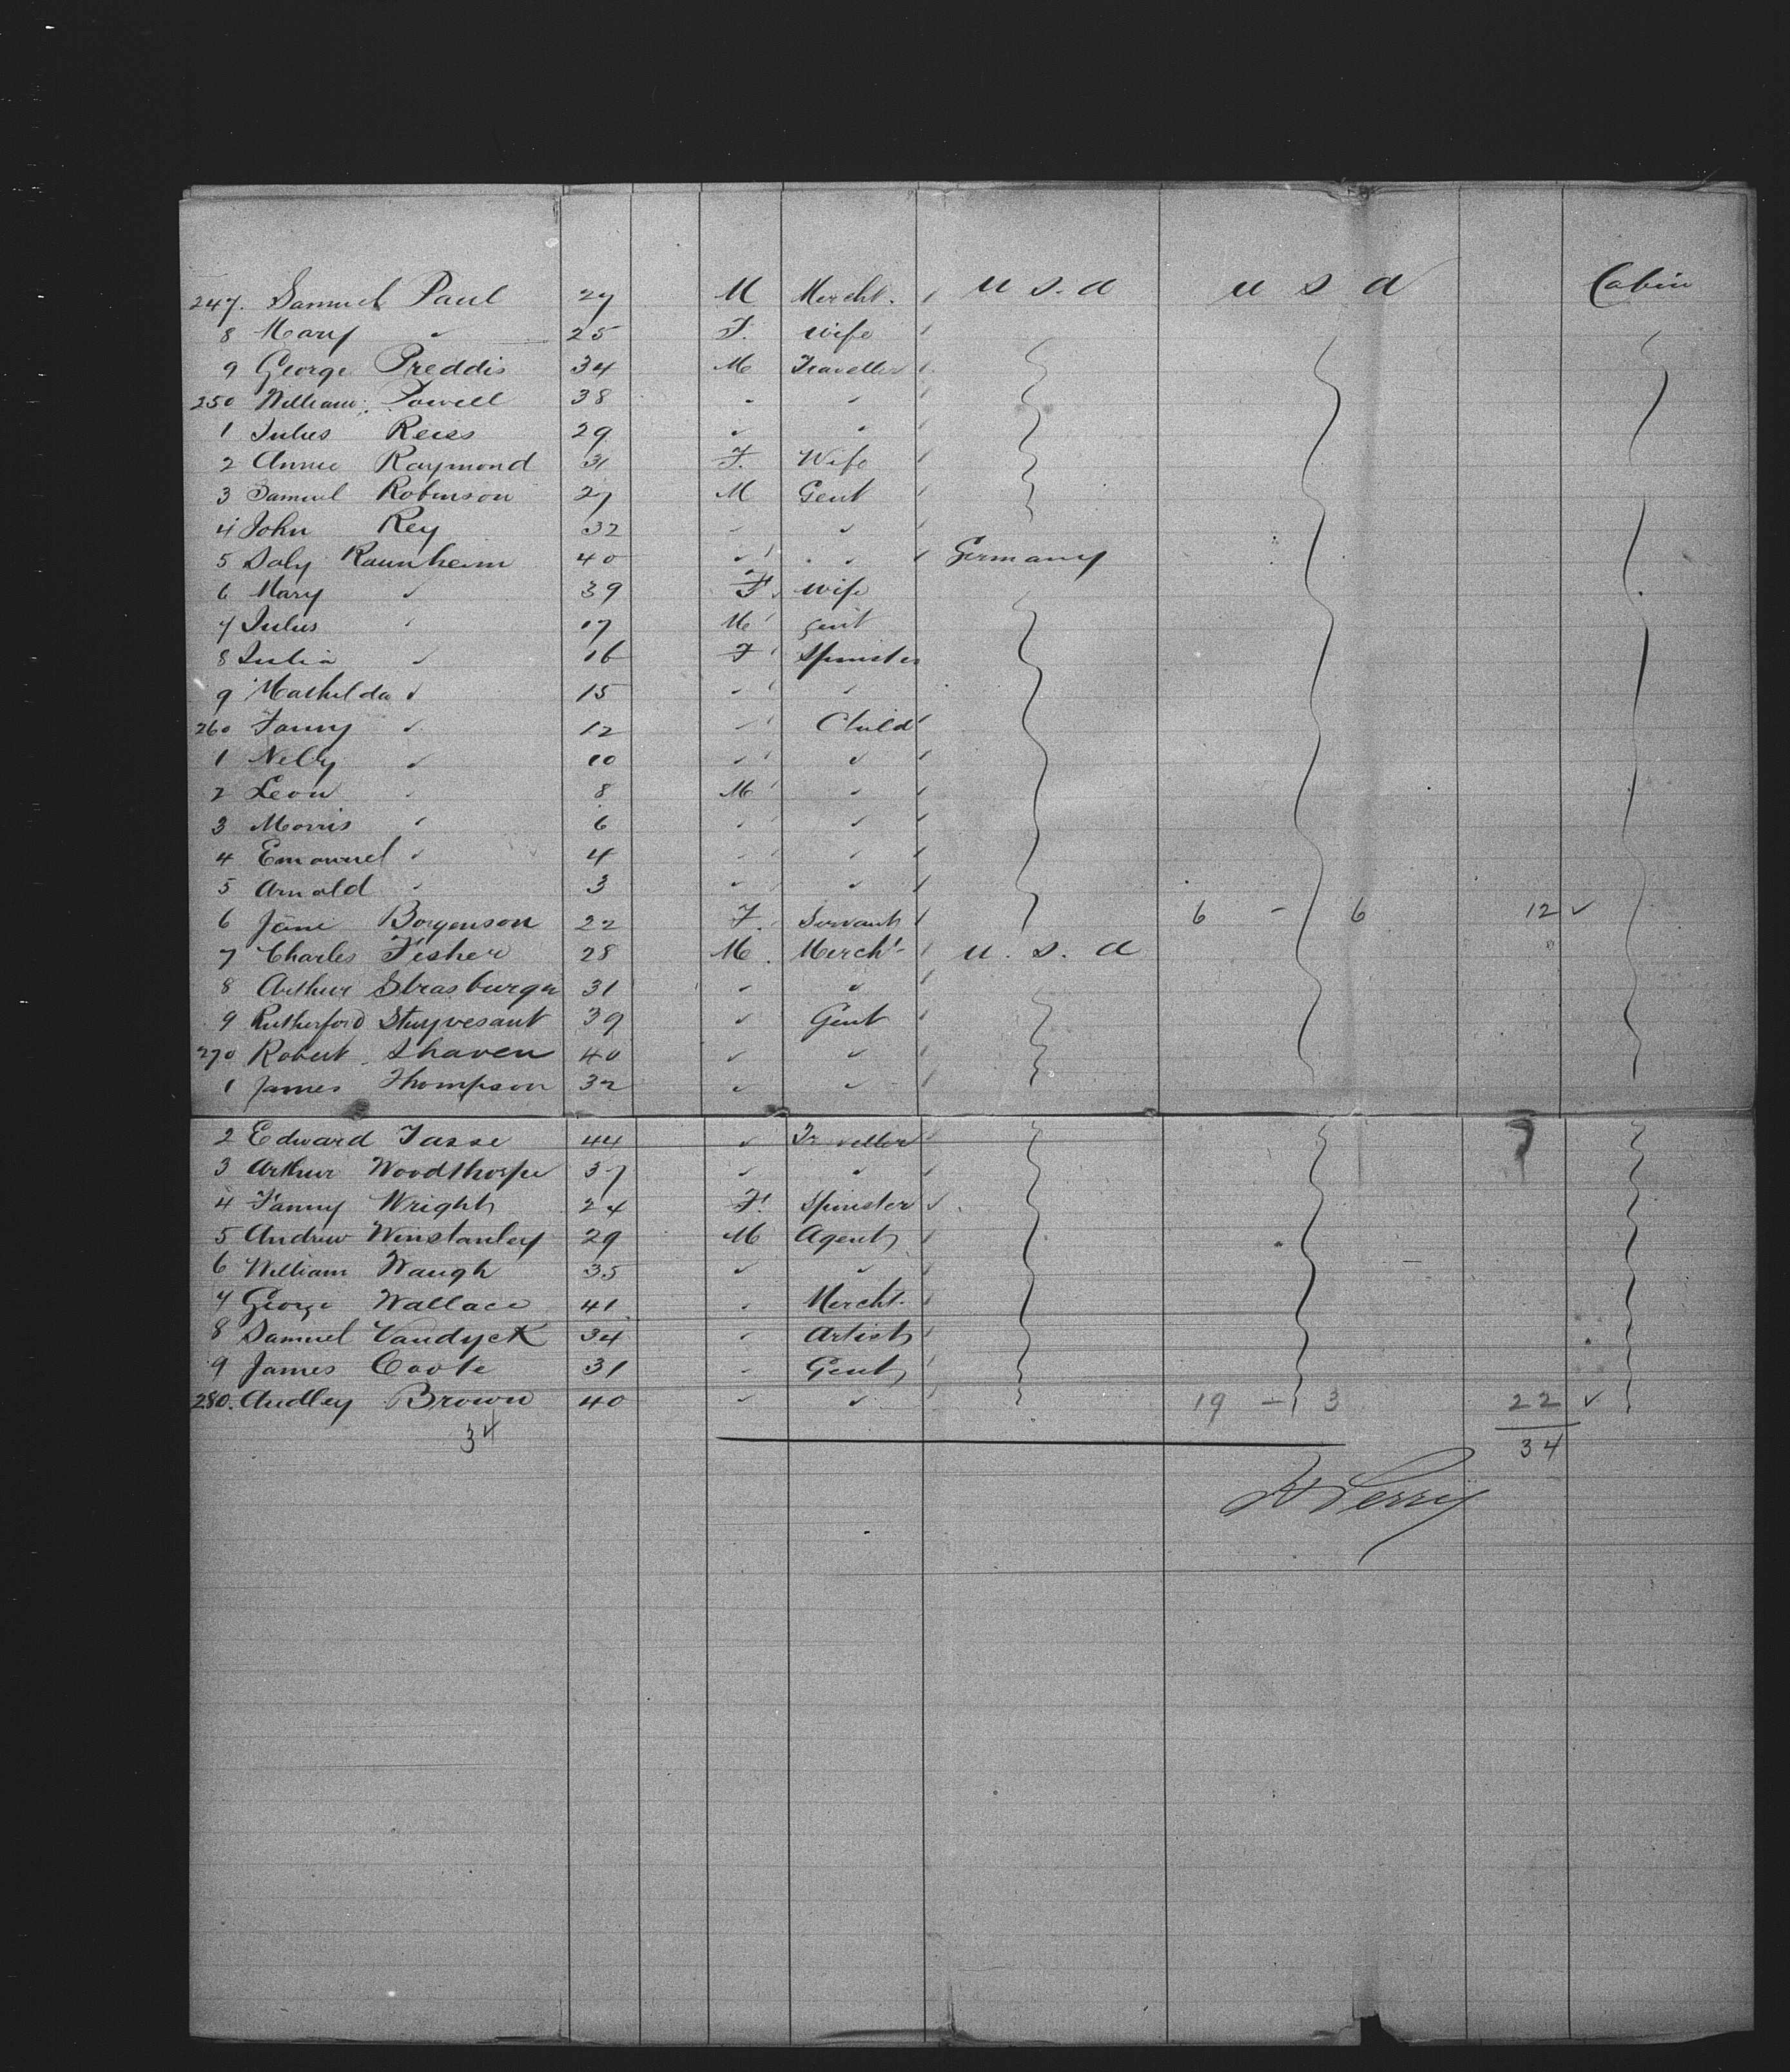 247. Samuel Paul 27 M Mercht. u s. a u s a Cabin
8 Mary " 25 F. Wife
9 George Preddis 34 M Traveller
250 William Powell 38 " "
1 Julius Reiss 29 " "
2 Annie Raymond 31 F. Wife
3 Samuel Robinson 27 M Gent
4 John Rey 32 " "
5 Saly Raunheim 40 " " Germany
6 Mary " 39 F. Wife
7 Julius " 17 M gent
8 Julia " 16 F Spinster
9 Mathilda " 15 " "
260 Fanny " 12 " Child
1 Nelly " 10 " "
2 Leon " 8 M "
3 Morris " 6 " "
4 Emanuel " 4 " "
5 Arnold " 3 " "
6 Jane Borgenson 22 F. Servant 6 - 6 12 ✓
7 Charles Fisher 28 M. Mercht u. s. a
8 Arthur Strasburger 31 " "
9 Rutherford Stuyvesant 39 " Gent
270 Robert Shaven 40 " "
1 James Thompson 32 " "
2 Edward Tasse 44 " Traveller
3 Arthur Woodthorpe 37 " "
4 Fanny Wright 24 F. Spinster
5 Andrew Winstanley 29 M Agent
6 William Waugh 35 " "
7 George Wallace 41 " Mercht.
8 Samuel Vandyck 34 " Artist
9 James Coote 31 " Gent
280. Audley Brown 40 " " 19 - 3 22 ✓
34 34
H Perry